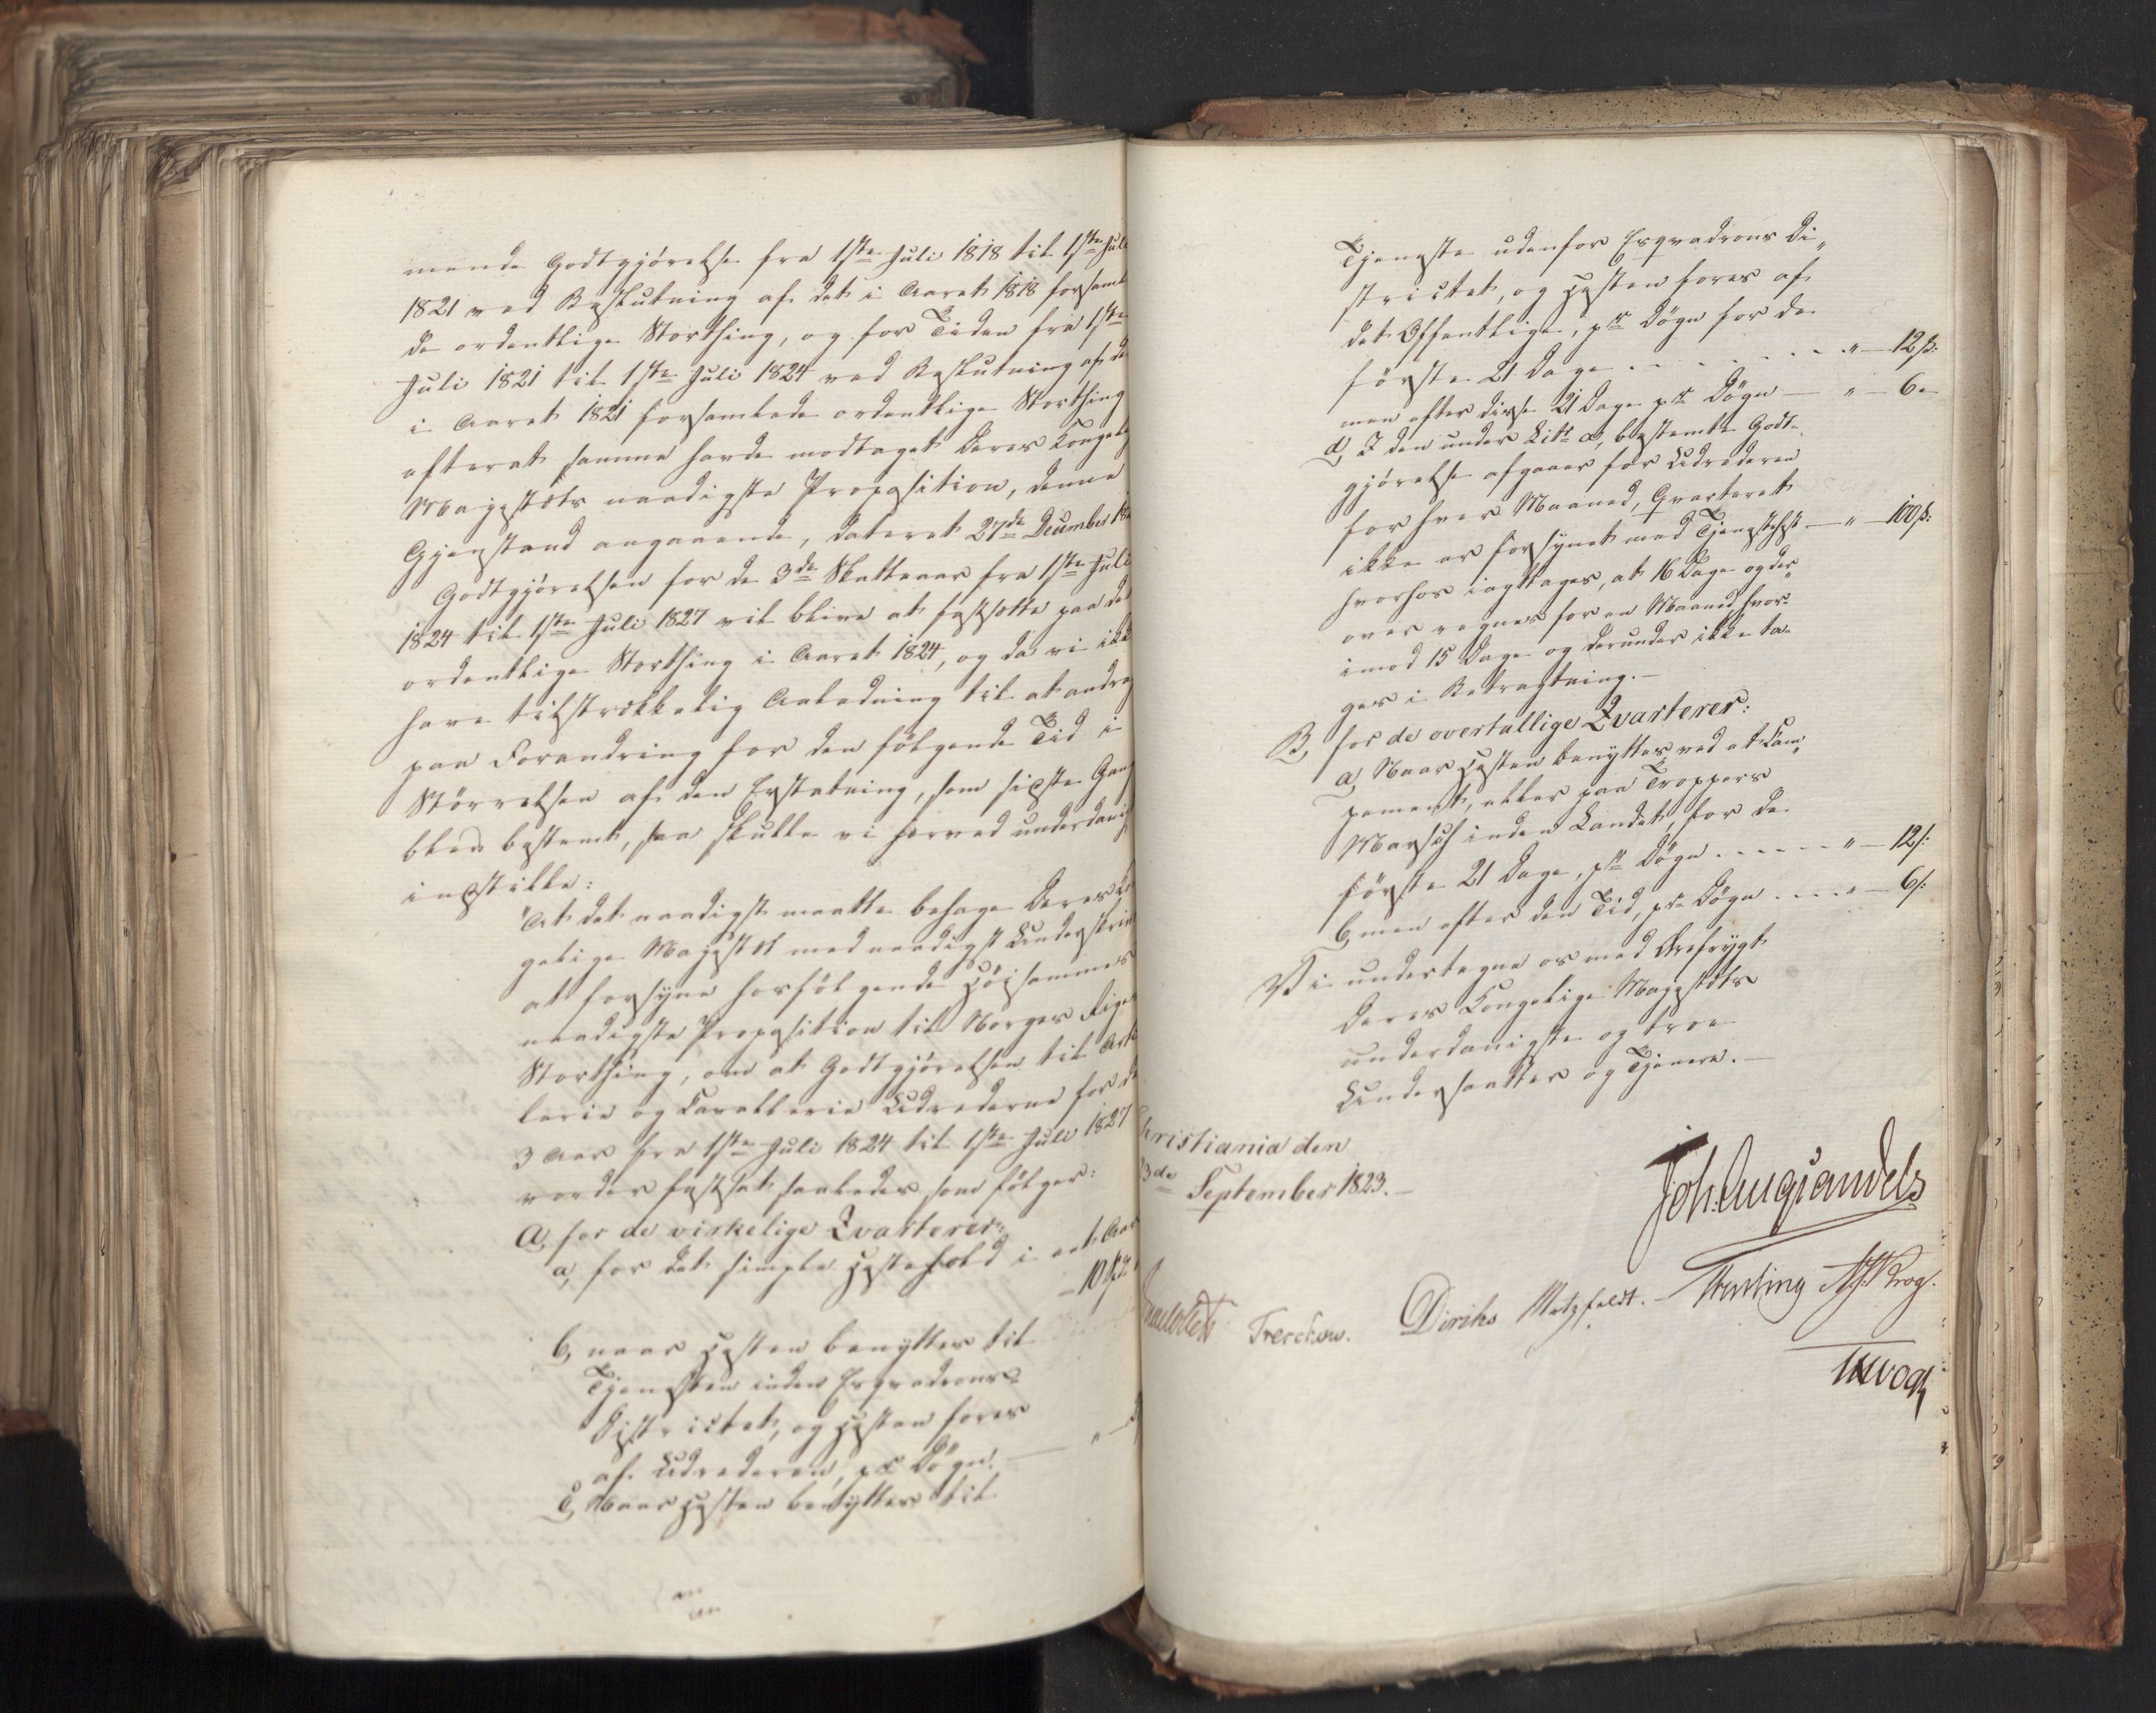 mende Godtgjörelse fra 1ste Juli 1818 til 1ste Juli
1821 ved Beslutning af det i Aaret 1818 forsaml
de ordentlige Storthing, og for Tiden fra 1ste
Juli 1821 til 1ste Juli 1824 ved Beslutning af de
i Aaret 1821 forsamlede ordentlige Storthing
efterat samme havde modtaget Deres Kongelig
Majestæts naadigste Proposition, denne
Gjenstand angaaende, dateret 27de December 18
Godtgjörelsen for de 3de Skatteaar fra 1ste Juli
1824 til 1ste Juli 1827 vil blive at fastsætte paa det
ordentlige Storthing i Aaret 1824, og da vi ikke
have tilstrækkelig Anledning til at andrag
paa Forandring for den følgende Tid i
Størrelsen af den Erstatning, som sidste Gang
blev bestemt, saa skulle vi herved underdanig
indstille:
"At det naadigst maatte behage Deres Ko
gelige Majestæt med naadigst Underskrivt
at forsyne hosfölgende Höisammes
naadigste Proposition til Norges Riges
Storthing, om at Godtgjörelsen til Artil
lerie og Cavallerie Udrederne for de
3 Aar fra 1ste Juli 1824 til 1ste Juli 1827
vorder fastsat saaledes som fölger:
A, for de virkelige Qvarterer:
a, for det simple Hestehold i eet Aar
– 10 Spd
b, naar Hesten benyttes til
Tjenesten inden Esqvadrons
Districtet, og Hesten fores
af Udrederen, pr Dögn. — " —
c, Naar Hesten benyttes til
Tjeneste udenfor Esqvadrons Di„
strictet, og Hesten fores af
det Offentlige, pr Dögn for de
förste 21 Dage . . . . . . . . " — 12 ß:
men efter disse 21 Dage pr Dögn — " — 6 „
d, I den under Litr a, bestemte Godt-
gjörelse afgaaer for Udrederen
for hver Maaned, Qvarteret
ikke er forsynet med Tjenesthest — " — 100 ß:
hvorhos iagttages, at 16 Dage og der„
over regnes for en Maaned, hvor-
imod 15 Dage og derunder ikke ta-
ges i Betragtning. –
B, for de overtallige Qvarterer:
a, Naar Hesten benyttes ved et Cam„
pement, eller paa Troppers
Marsch inden Landet, for de
förste 21 Dage, pr Dögn . . . . . . " — 12 ß:
b, men efter den Tid, pr Dögn . . . . " — 6 ß:
Vi undertegne os med Ærefrygt
Deres Kongelige Majestæts
underdanigste og troe
Undersaatter og Tjenere. –
Christiania den
3de September 1823. –
Joh. Aug. Sandels
Treschow. Diriks Motzfeldt. Fasting N. J. Krog.